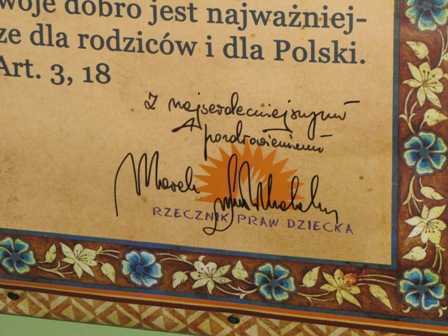 woje dobro jest najważniej-
ze dla rodziców i dla Polski.
Art. 3, 18
Z najserdeczniejszymi
pozdrowieniami
Marek Michalak
RZECZNIK PRAW DZIECKA